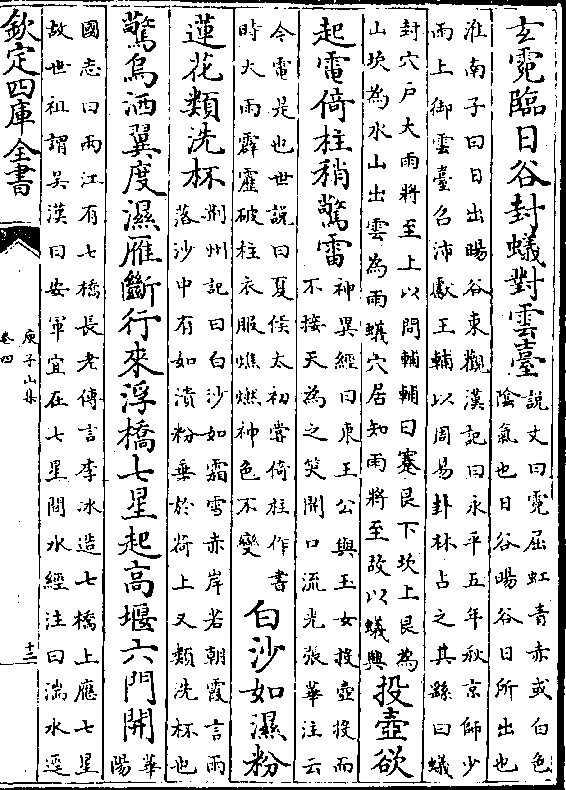 玄霓臨日谷封蟻對雲臺
說文曰霓屈虹青赤或白色
陰氣也日谷暘谷日所出也
淮南子曰日出暘谷東觀漢記曰永平五年秋京師少
雨上御雲臺召沛獻王輔以周易卦林占之其繇曰蟻
封穴戶大雨將至上以問輔輔曰蹇艮下坎上艮為
山坎為水山出雲為雨蟻穴居知雨將至故以蟻興
投壺欲
起電倚柱稍驚雷
神異經曰東王公與玉女投壺投而
不接天為之笑開口流光張華注云
今電是也世說曰夏侯太初嘗倚柱作書
時大雨霹靂破柱衣服燋燃神色不變
白沙如濕粉
蓮花類洗杯
荊州記曰白沙如霜雪赤岸若朝霞言雨
落沙中有如漬粉垂於荷上又類洗杯也
驚烏洒翼度濕雁斷行來浮橋七星起高堰六門開
華
陽
國志曰兩江有七橋長老傳言李冰造七橋上應七星
故世祖謂吳漢曰安軍宜在七星間水經注曰湍水逕
欽定四庫全書
庾子山集
卷四
十二